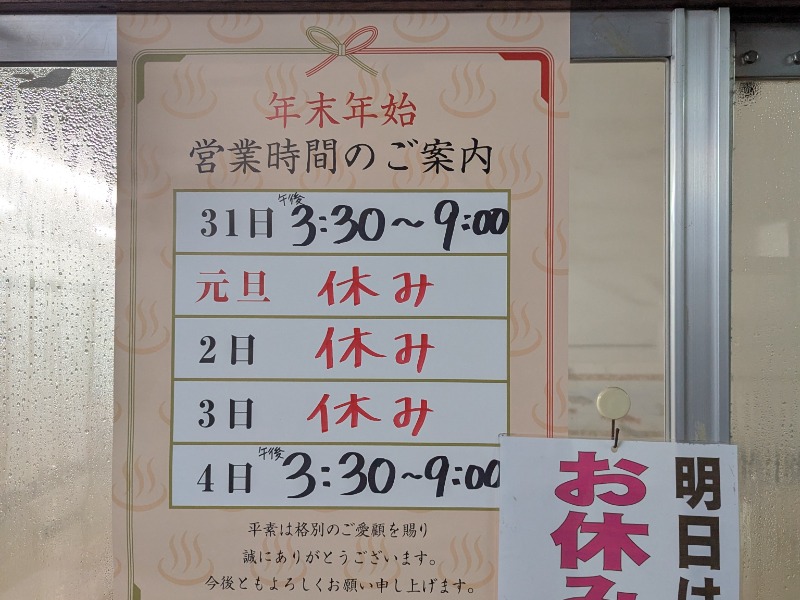 年末年始
営業時間のご案内
31日 午後 3:30〜9:00
元旦 休み
2日 休み
3日 休み
4日 午後 3:30〜9:00
平素は格別のご愛顧を賜り
誠にありがとうございます。
今後ともよろしくお願い申し上げます。
明日は
お休み